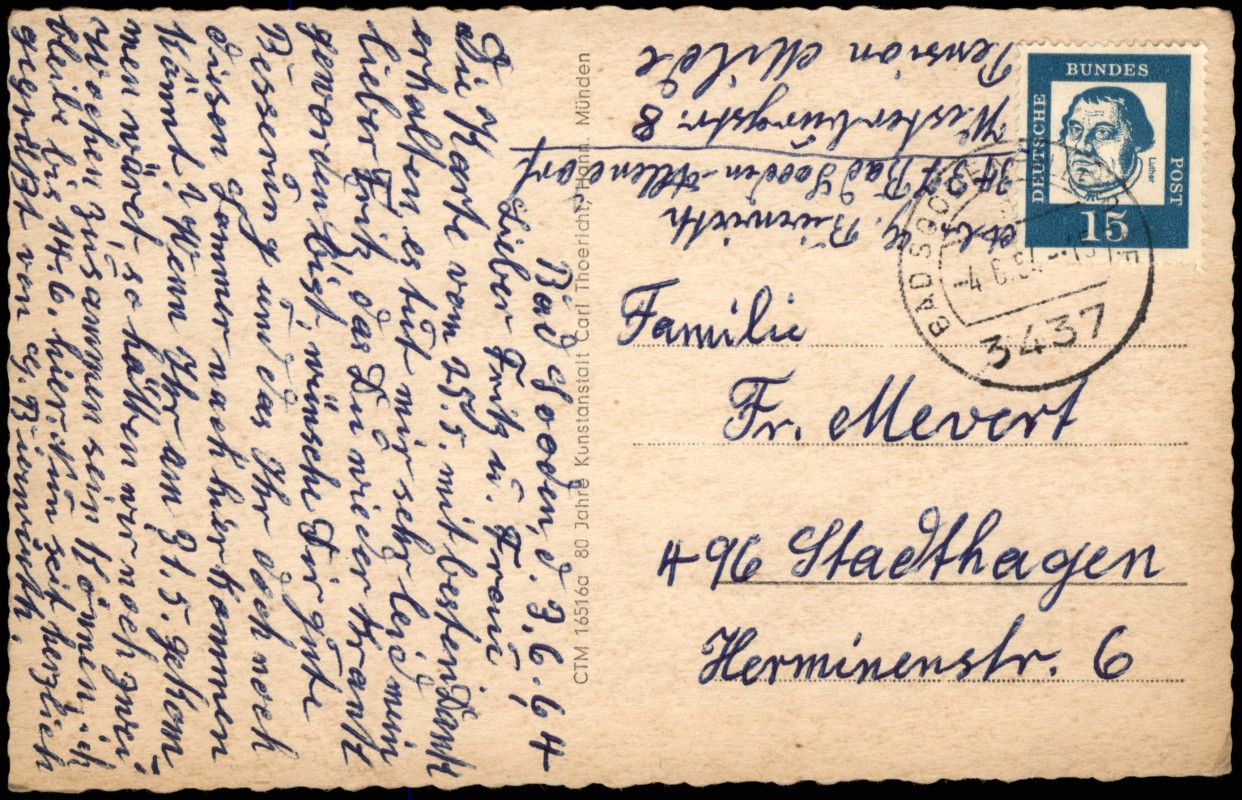 Bad Sooden, d. 3.6.64
Lieber Fritz u. Frau
Die Karte vom 25.5. mit besten Dank
erhalten, es tut mir sehr leid mein
lieber Fritz, das Du wieder krank
geworden bist, wünsche Dir gute
Besserung und das Ihr doch noch
diesen Sommer nach hier kommen
könnt, wenn Ihr am 31.5. gekom-
men wäret, so hätten wir noch zwei
Wochen zusammen sein können, ich
bleibe bis 14.6. hier, nun seit herzlich
gegrüßt von G. Bierwirth.
CTM 16516a 80 Jahre Kunstanstalt Carl Thoericht, Hann. Münden
G. Bierwirth
3437 Bad Sooden-Allendorf
Westerburgstr. 8
Pension Milde
DEUTSCHE
BUNDES
POST
Luther
15
BAD SOODEN
-4.6.64
3437
Familie
Fr. Mevert
496 Stadthagen
Herminenstr. 6